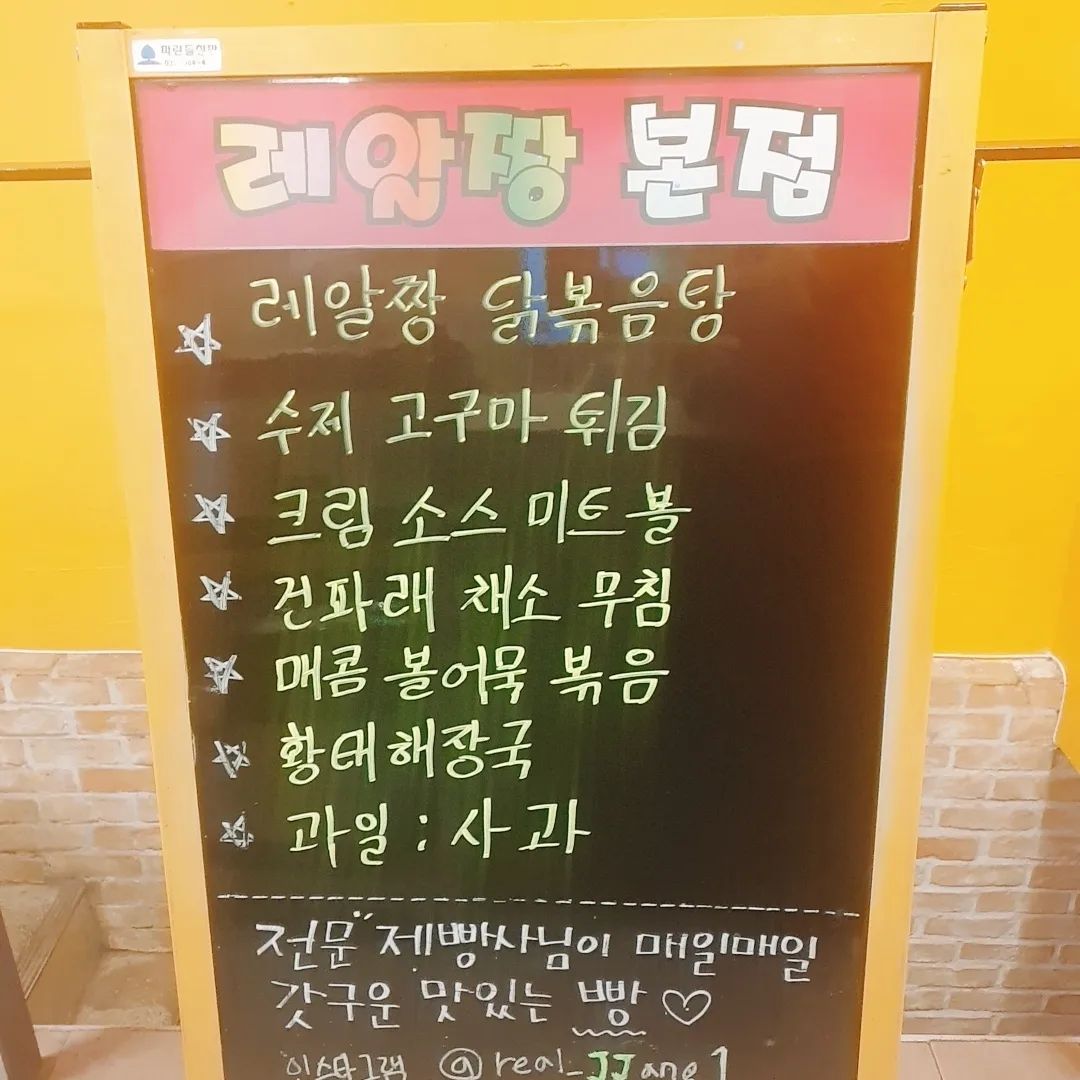 레알짱 본점
☆ 레알짱 닭볶음탕
☆ 수제 고구마 튀김
☆ 크림 소스 미트볼
☆ 건파래 채소 무침
☆ 매콤 볼어묵 볶음
☆ 황태해장국
☆ 과일 : 사과
전문 제빵사님이 매일매일
갓구운 맛있는 빵 ♡
인스타그램 @real_JJang1